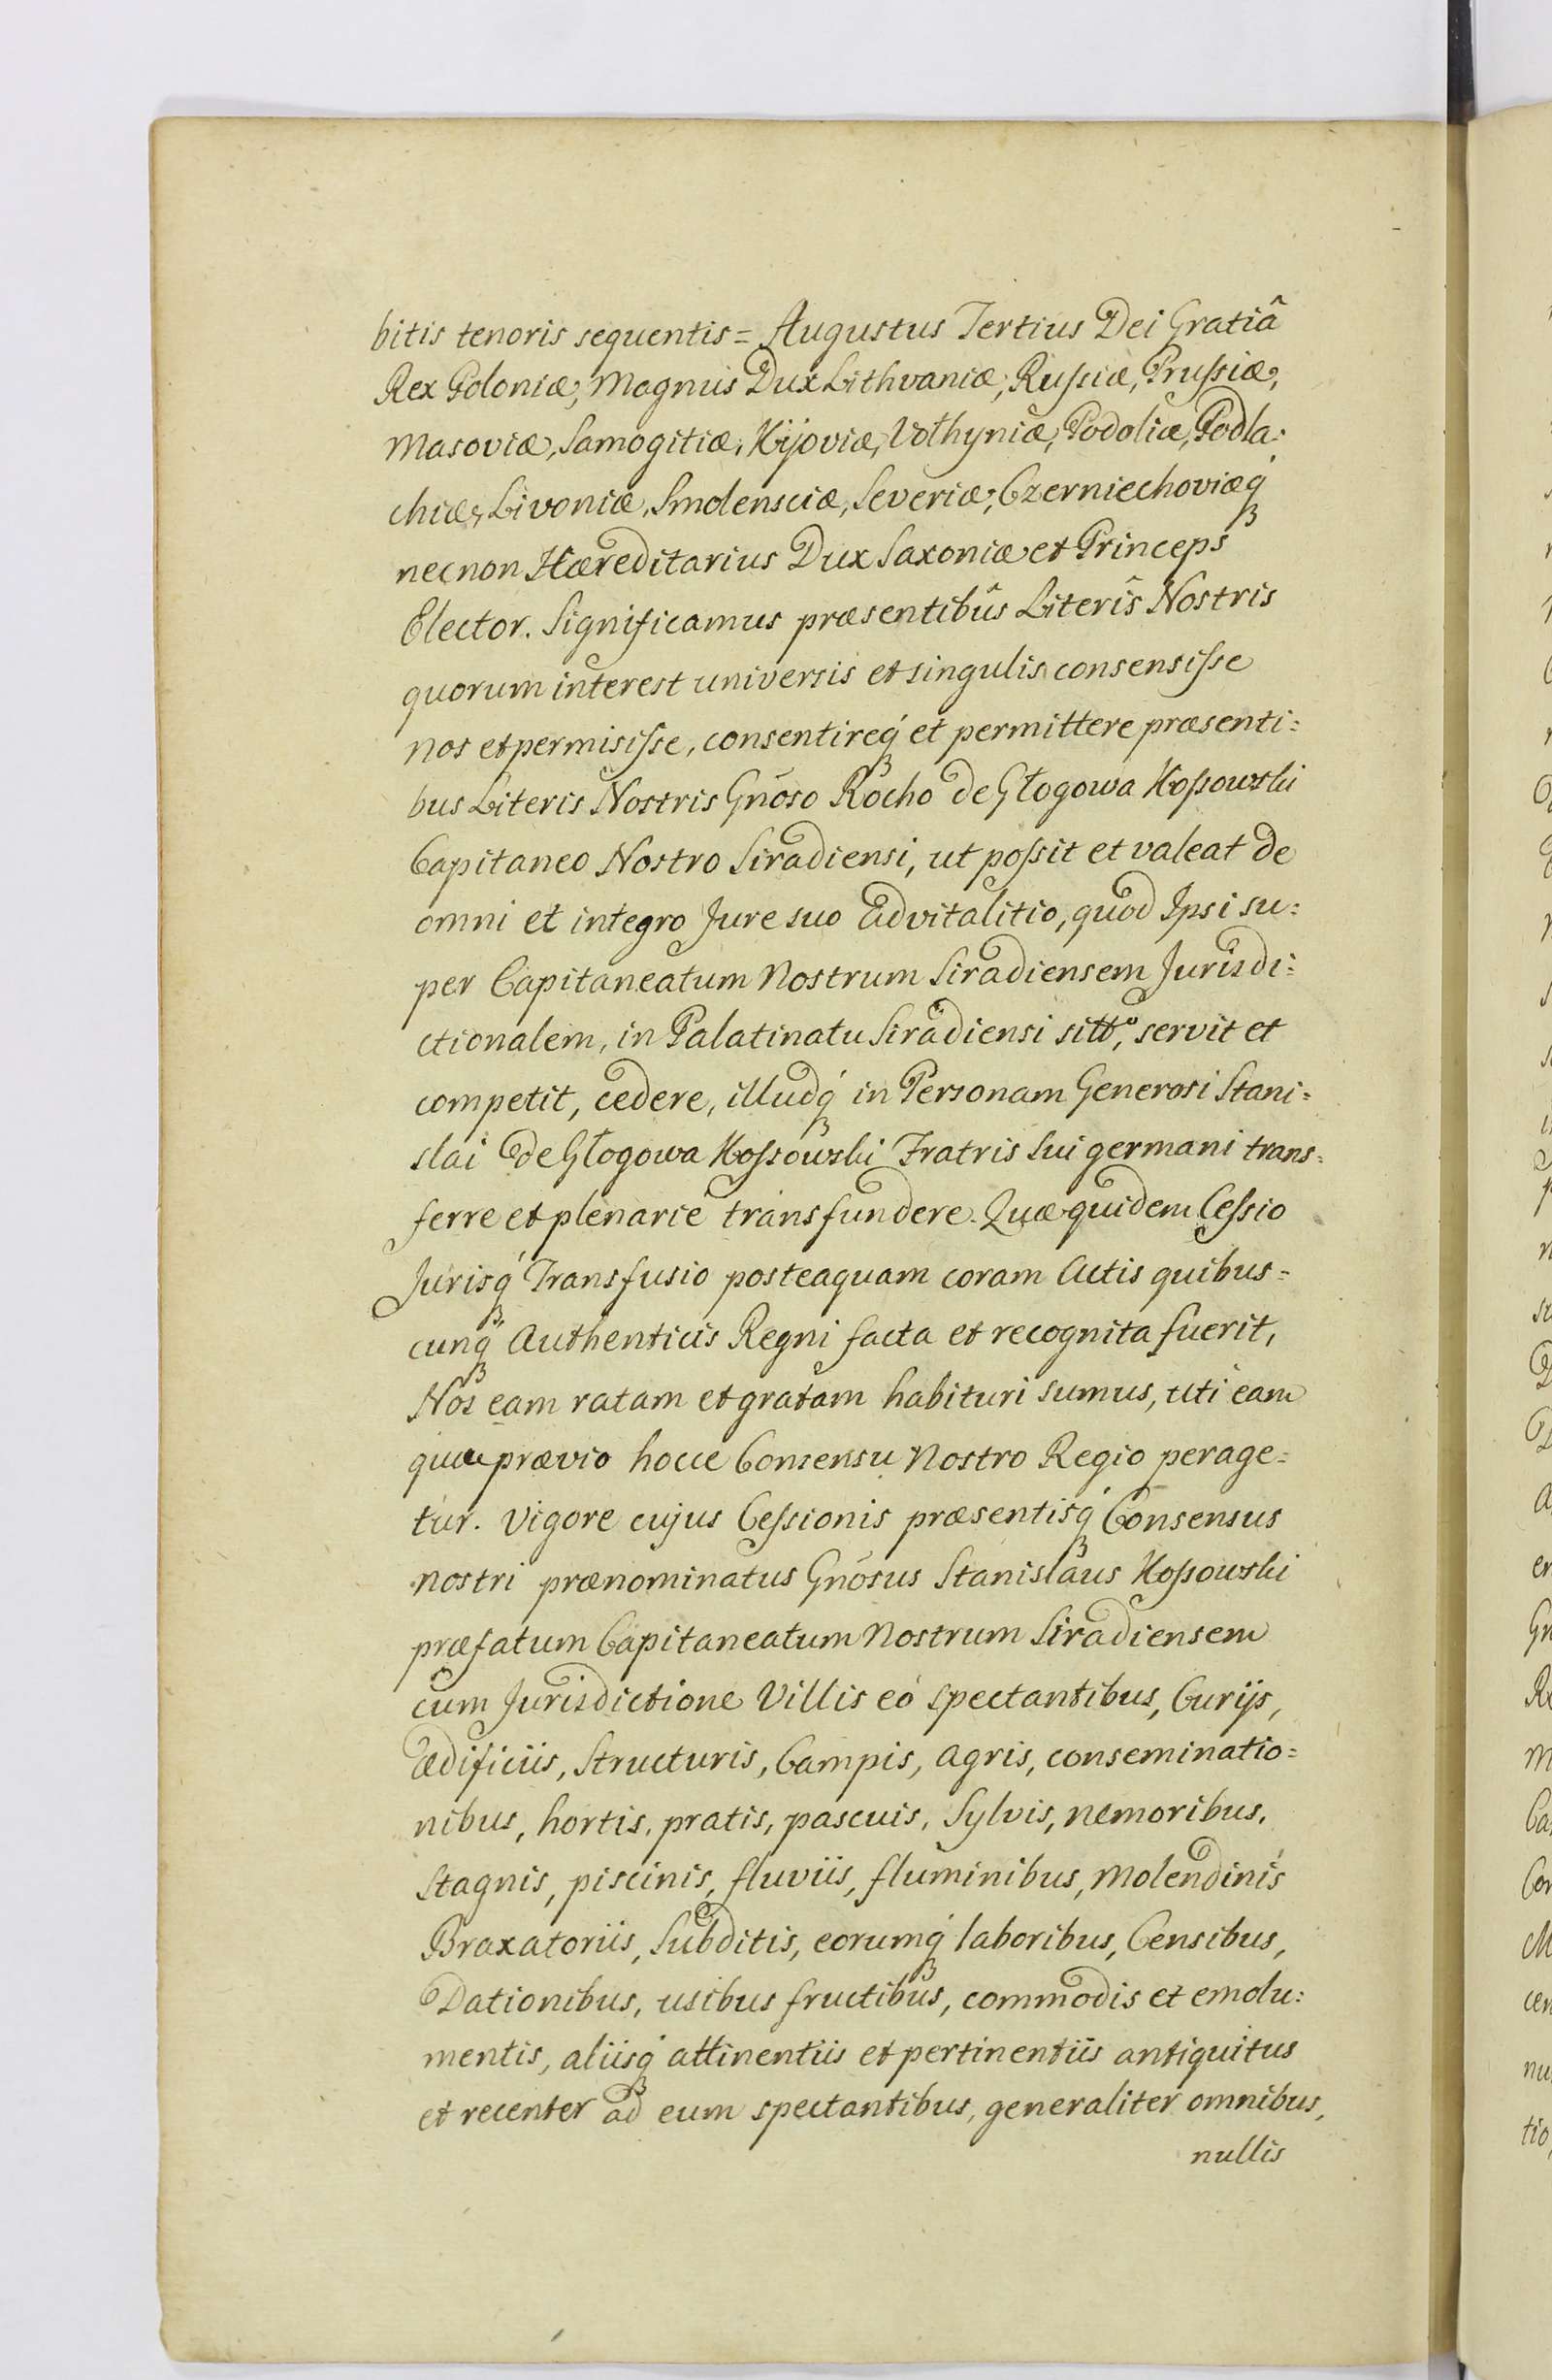 bitis tenoris sequentis = Augustus Tertius Dei Gratiâ
Rex Poloniæ, Magnus Dux Lithvaniæ, Rußiæ, Prußiæ,
Masoviæ, Samogitiæ, Kijoviæ, Volhyniæ, Podoliæ, Podla=
chiæ, Livoniæ, Smolensciæ, Severiæ, Czerniechoviæq́
necnon Hæreditarius Dux Saxoniæ et Princeps
Elector. Significamus præsentibûs Literîs Nostris
quorum interest universis et singulis consensiße
nos et permisiße, consentireq́ et permittere præsenti=
bus Literis Nostris Gnõso Rocho de Głogowa Koßowski
Capitaneo Nostro Siradiensi, ut poßit et valeat de
omni et integro Jure suo advitalitio, quod Ipsi su=
per Capitaneatum Nostrum Siradiensem Jurisdi=
ctionalem, in Palatinatu Siradiensi sittõ, servit et
competit, cedere, illudq́ in Personam Generosi Stani=
slai de Głogowa Koßowski Fratris Sui germani trans=
ferre et plenarie transfundere. Quæ quidem Ceßio
Jurisq́ Transfusio posteaquam coram Actis quibus=
cunq́ Authenticis Regni facta et recognita fuerit,
Nos eam ratam et gratam habituri sumus, uti eam
quæ prævio hocce Consensu Nostro Regio perage=
tur. Vigore cujus Ceßionis præsentisq́ Consensus
nostri prænominatus Gnõsus Stanislaus Koßowski
præfatum Capitaneatum Nostrum Siradiensem
cum Jurisdictione Villis eó spectantibus, Curijs,
ædificiis, Structuris, Campis, Agris, conseminatio=
nibus, hortis, pratis, pascuis, Sylvis, nemoribus,
Stagnis, piscinis, fluviis, fluminibus, Molendinis
Braxatoriis, Subditis, eorumq́ laboribus, Censibus,
Dationibus, usibus fructibus, commodis et emolu=
mentis, aliisq́ attinentiis et pertinentiis antiquitus
et recenter ad eum spectantibus, generaliter omnibus,
nullis